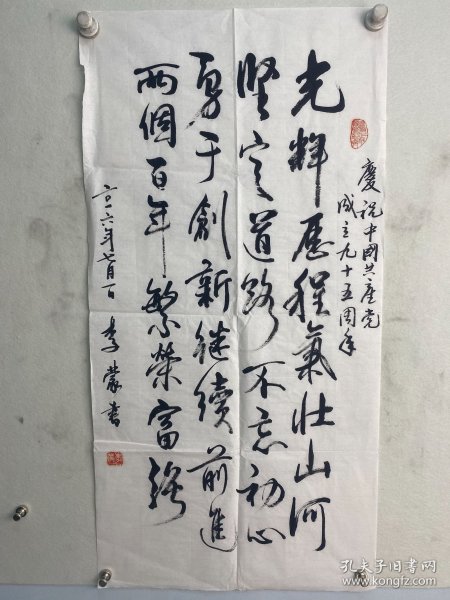 慶祝中國共產党
成立九十五周年
光輝歷程氣壮山河
堅定道路不忘初心
勇于創新継续前進
两個百年繁榮富強
二〇一六年七月一日 李蒙書
孔夫子旧书网
www.kongfz.com